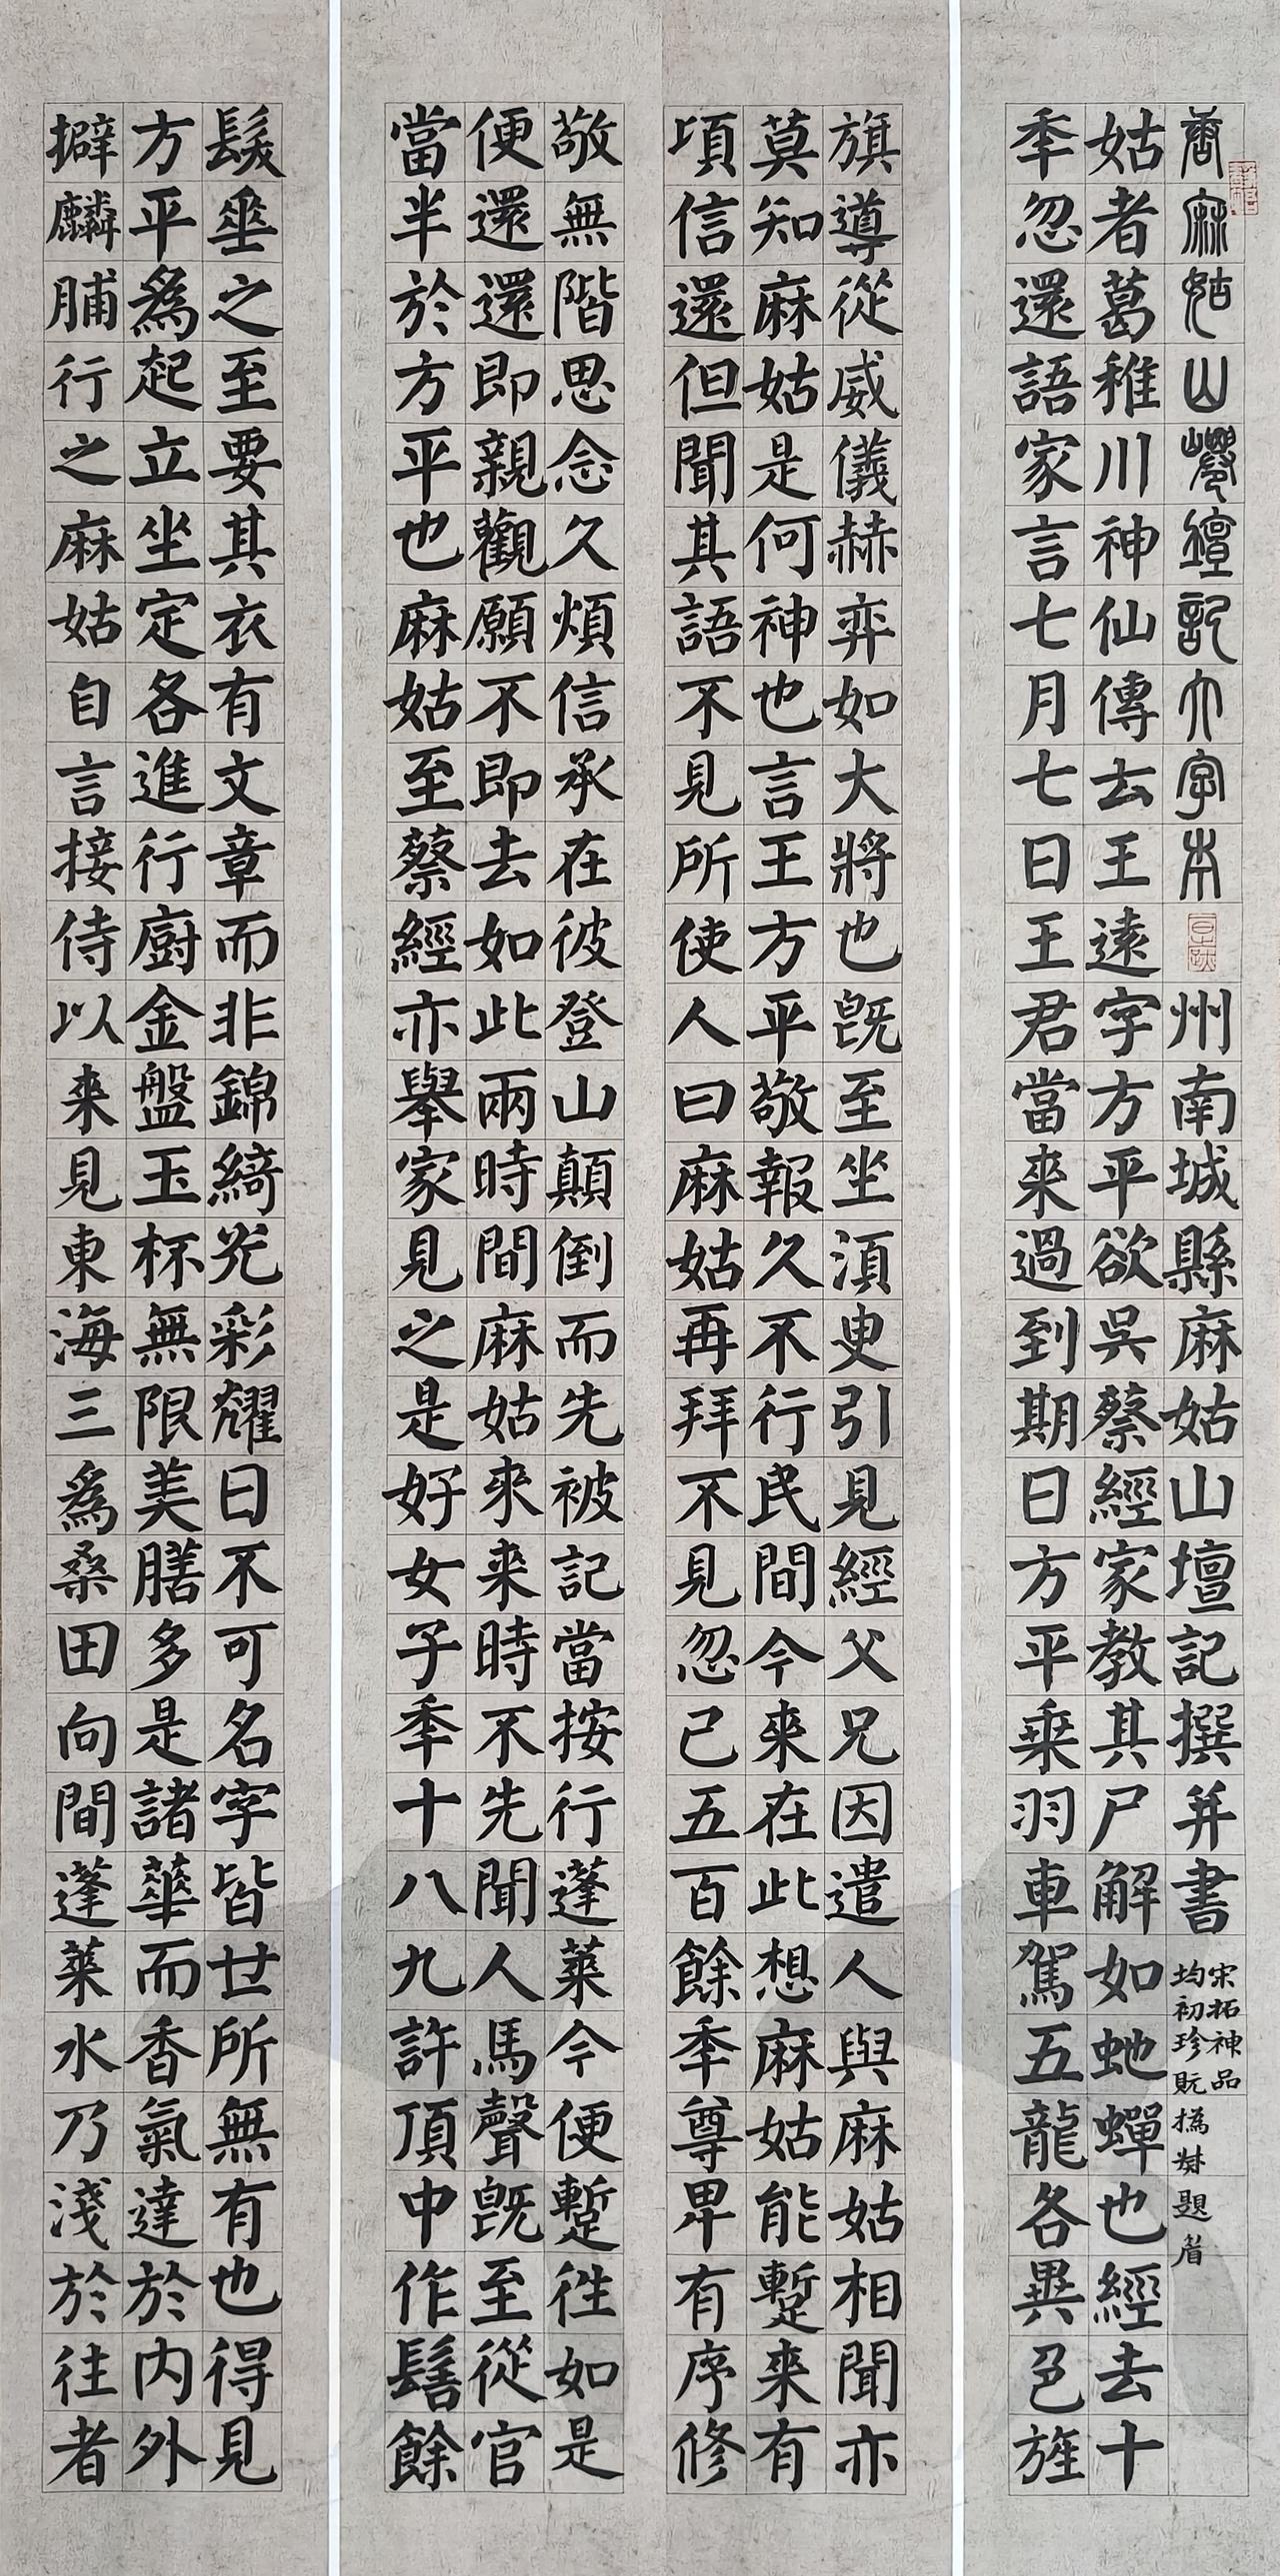 唐麻姑山僊壇記大字本
州南城縣麻姑山壇記撰并書
宋拓神品
均初珍玩
撝叔題眉
姑者葛稚川神仙傳云王遠字方平欲吳蔡經家教其尸解如虵蟬也經去十
秊忽還語家言七月七日王君當來過到期日方平乘羽車駕五龍各異色旌
旗導從威儀赫弈如大將也既至坐須臾引見經父兄因遣人與麻姑相聞亦
莫知麻姑是何神也言王方平敬報久不行民間今來在此想麻姑能蹔來有
頃信還但聞其語不見所使人曰麻姑再拜不見忽已五百餘秊尊卑有序修
敬無階思念久煩信承在彼登山顛倒而先被記當按行蓬萊今便蹔往如是
便還還即親觀願不即去如此兩時間麻姑來来時不先聞人馬聲既至從官
當半於方平也麻姑至蔡經亦舉家見之是好女子秊十八九許頂中作髻餘
髮垂之至要其衣有文章而非錦綺光彩耀日不可名字皆世所無有也得見
方平為起立坐定各進行廚金盤玉杯無限美膳多是諸華而香氣達於內外
擗麟脯行之麻姑自言接侍以来見東海三為桑田向間蓬萊水乃淺於往者